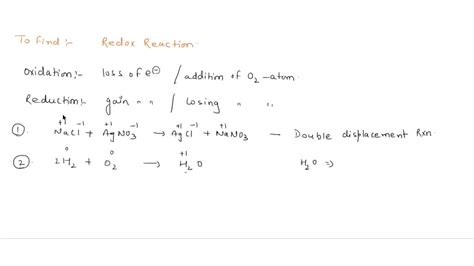 To find :- Redox Reaction.
Oxidation:- loss of e⊖ / addition of O2-atom
Reduction:- gain " " / Losing " "
① +1 -1 +1 -1 +1 -1 +1
NaCl + AgNO3 → AgCl + NaNO3 — Double displacement Rxn.
② 0 0 +1
2H2 + O2 → H2O H2O ⇒